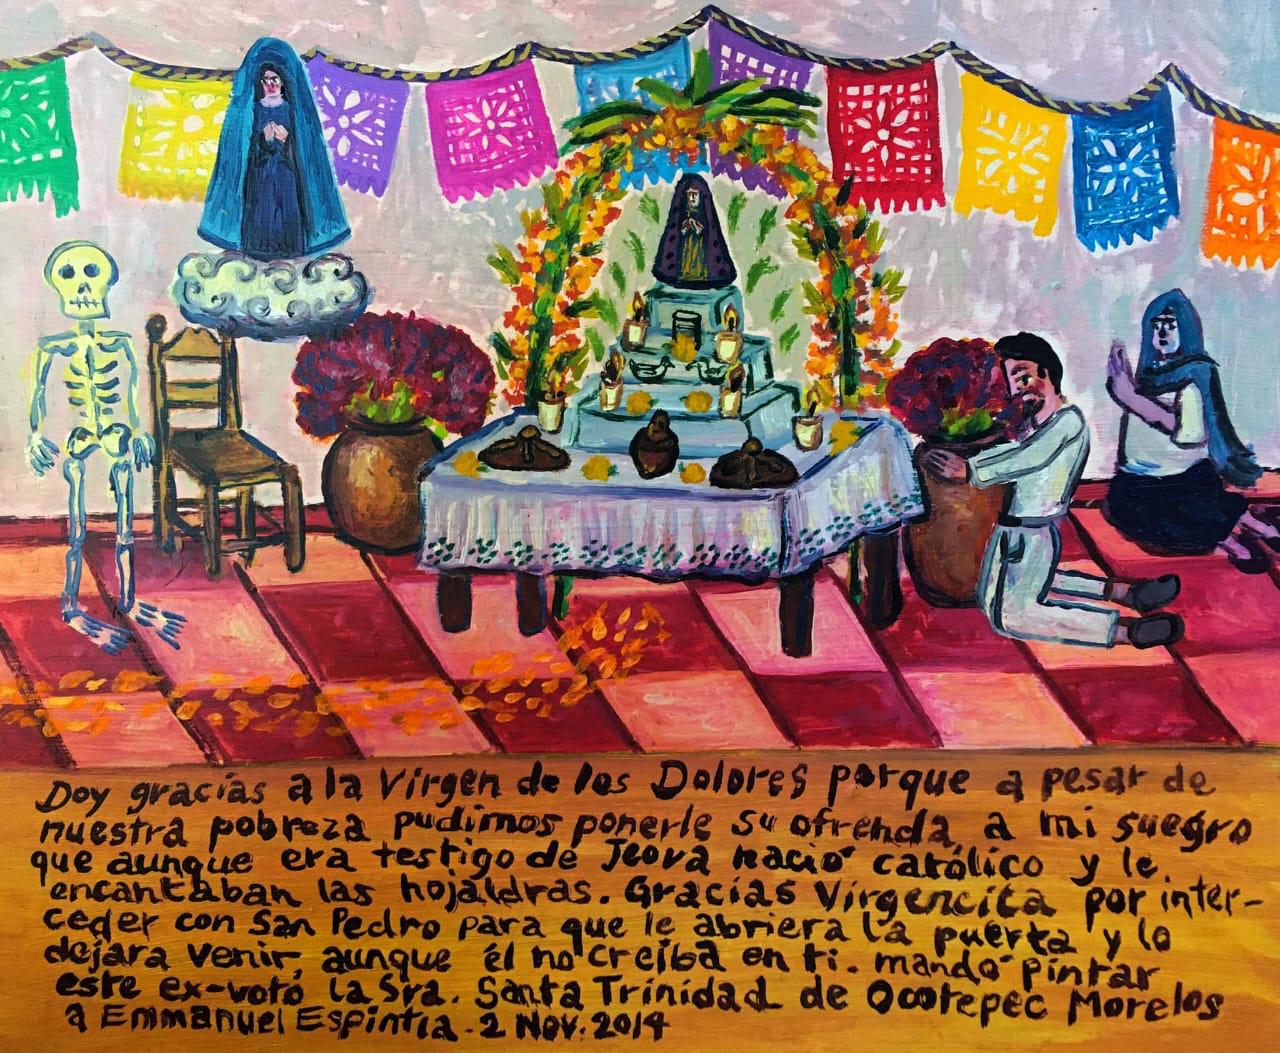 Doy gracias a la Virgen de los Dolores porque a pesar de
nuestra pobreza pudimos ponerle su ofrenda a mi suegro
que aunque era testigo de Jeova nació católico y le
encantaban las hojaldras. Gracias Virgencita por inter-
ceder con San Pedro para que le abriera la puerta y lo
dejara venir, aunque él no creiba en ti. mandó pintar
este ex-voto la Sra. Santa Trinidad de Ocotepec Morelos
a Emmanuel Espintia. 2 Nov. 2014